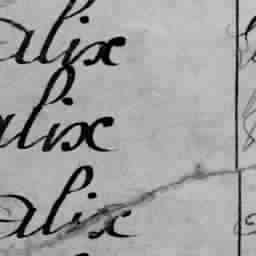 alix
alix
alix